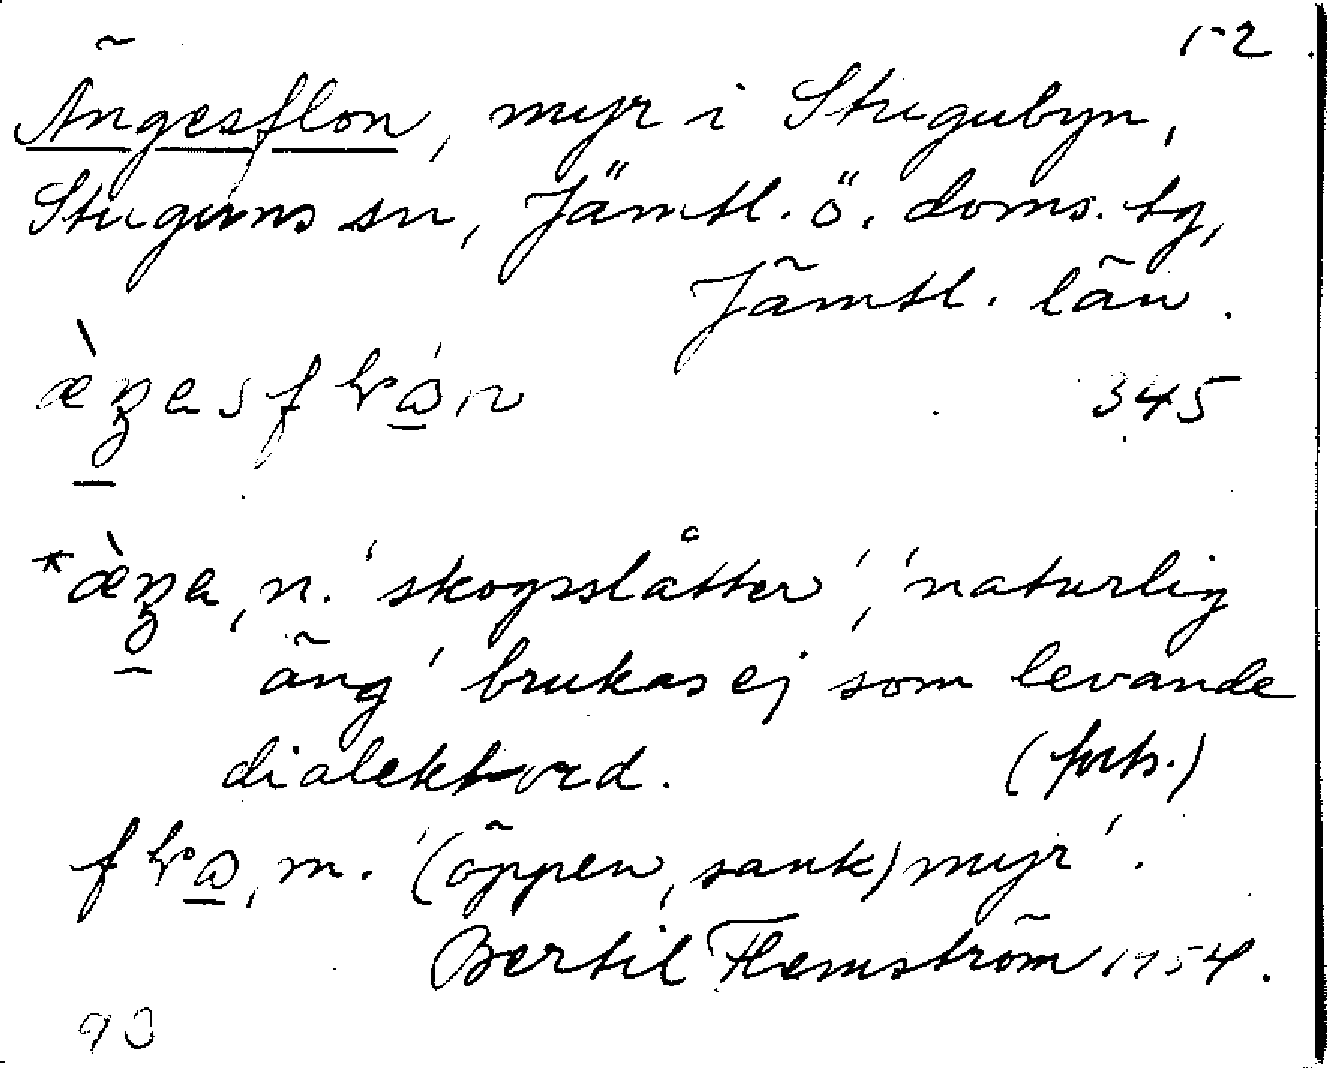 1-2
Ängesflon, myr i Stugubyn,
Stuguns sn, Jämtl. ö. doms. tg,
Jämtl. län.
345
n. 'skogsslåtter', 'naturlig
äng' brukas ej som levande
dialektord. (forts.)
m. '(öppen, sank) myr'.
Bertil Flemström 1954.
93